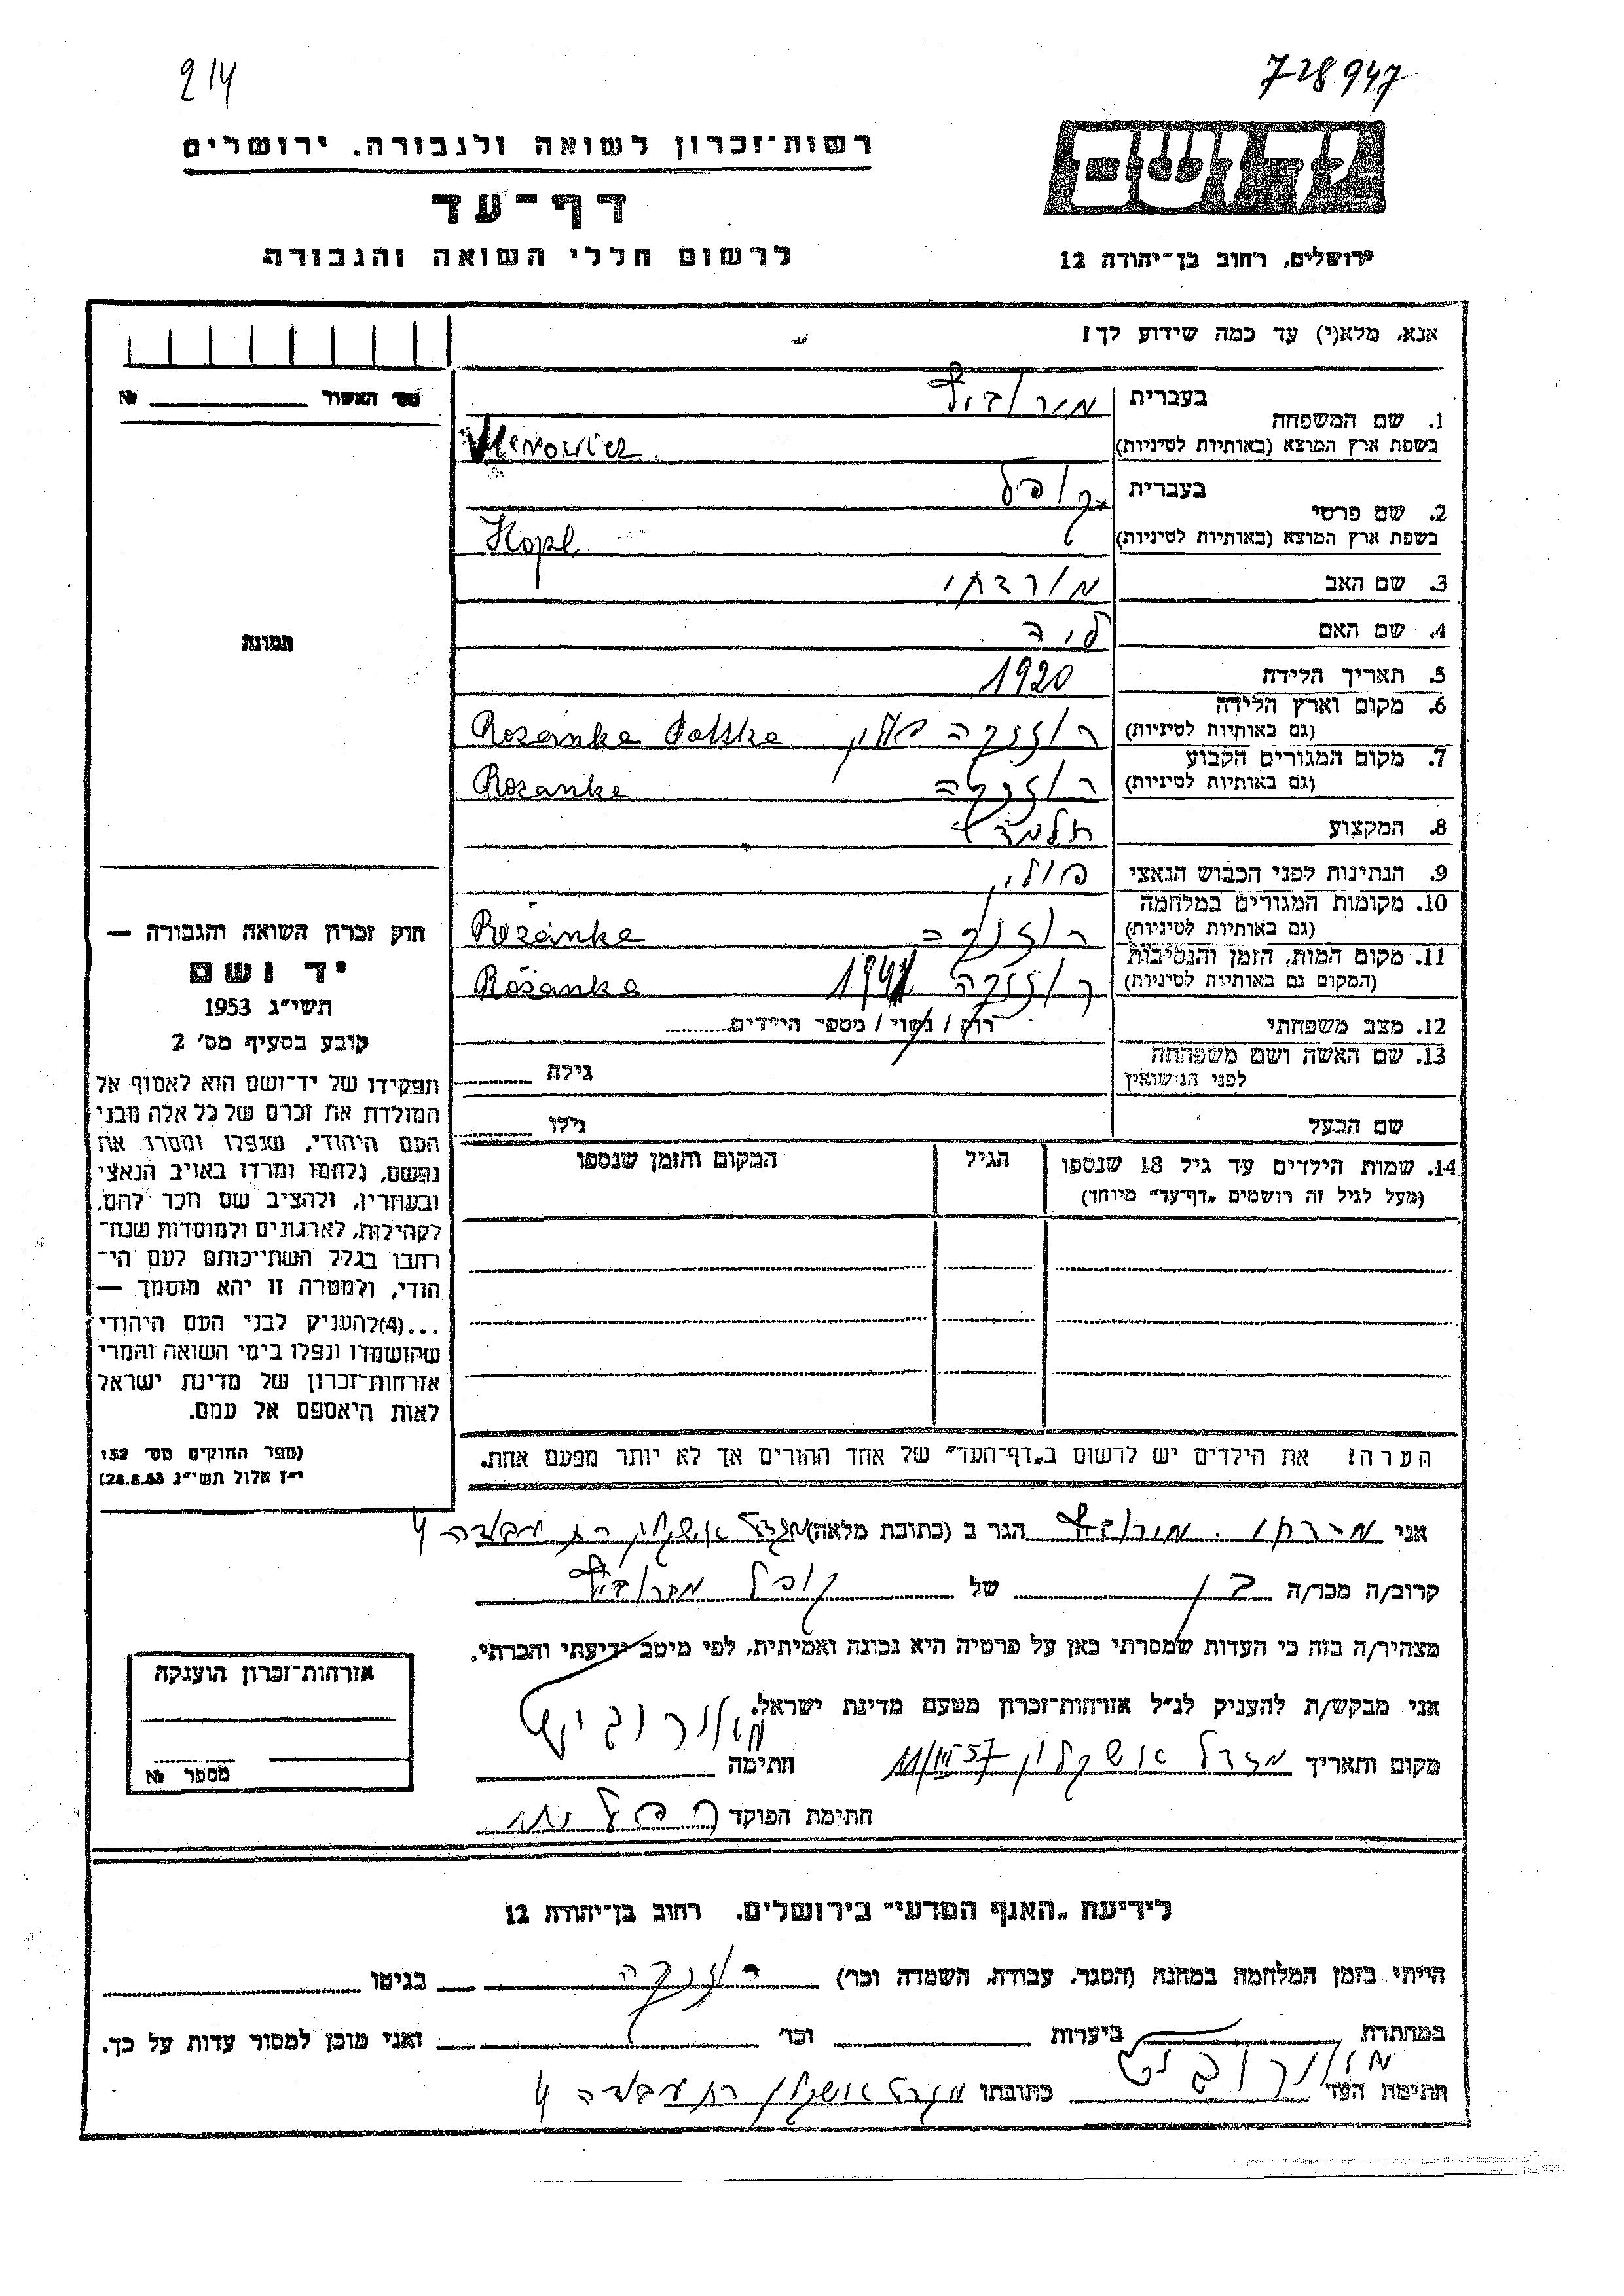 214
728947
רשות־זכרון לשואה ולגבורה, ירושלים
דף־עד
לרשום חללי השואה והגבורה
יד ושם
ירושלים, רחוב בן־יהודה 12
אנא, מלא(י) עד כמה שידוע לך!
מס׳ האשור № 
1. שם המשפחה
בעברית מירוביץ
בשפת ארץ המוצא (באותיות לטיניות) Merowicz
2. שם פרטי
בעברית קופל
בשפת ארץ המוצא (באותיות לטיניות) Kopl
3. שם האב מורדחי
4. שם האם
5. תאריך הלידה 1920
6. מקום וארץ הלידה
(גם באותיות לטיניות) רוזנקה פולין Rozanka Polska
7. מקום המגורים הקבוע
(גם באותיות לטיניות) רוזנקה Rozanka
8. המקצוע תלמיד
9. הנתינות לפני הכבוש הנאצי פולין
10. מקומות המגורים במלחמה
(גם באותיות לטיניות) רוזנקה Rozanka
11. מקום המות, הזמן והנסיבות
(המקום גם באותיות לטיניות) רוזנקה Rozanka
12. מצב משפחתי רוק / נשוי / מספר הילדים
13. שם האשה ושם משפחתה
לפני הנישואין גילה
שם הבעל גילו
14. שמות הילדים עד גיל 18 שנספו
(מעל לגיל זה רושמים „דף־עד״ מיוחד)
הגיל
המקום והזמן שנספו
הערה! את הילדים יש לרשום ב„דף־העד״ של אחד ההורים אך לא יותר מפעם אחת.
תמונה
חוק זכרון השואה והגבורה —
יד ושם
תשי״ג 1953
קובע בסעיף מס׳ 2
ותפקידו של יד־ושם הוא לאסוף אל
המולדת את זכרם של כל אלה מבני
העם היהודי, שנפלו ומסרו את
נפשם, נלחמו ומרדו באויב הנאצי
ובעוזריו, ולהציב שם וזכר להם,
לקהילות, לארגונים ולמוסדות שנח־
רבו בגלל השתייכותם לעם הי־
הודי, ולמטרה זו יהא מוסמך —
...(4)להעניק לבני העם היהודי
שהושמדו ונפלו בימי השואה והמרי
אזרחות־זכרון של מדינת ישראל
לאות היאספם אל עמם.
(ספר החוקים מס׳ 132
י״ז אלול תשי״ג 28.8.53)
אני מירוביץ הגר ב (כתובת מלאה) מגדל אשקלון
קרוב/ה מכר/ה בן של קופל מירוביץ
מצהיר/ה בזה כי העדות שמסרתי כאן על פרטיה היא נכונה ואמיתית, לפי מיטב ידיעתי והכרתי.
אני מבקש/ת להעניק לנ״ל אזרחות־זכרון מטעם מדינת ישראל.
מקום ותאריך מגדל אשקלון 11/III 57 חתימה
חתימת הפוקד
אזרחות־זכרון הוענקה
מספר №
לידיעת „האגף המדעי״ בירושלים, רחוב בן־יהודה 12
הייתי בזמן המלחמה במחנה (הסגר, עבודה, השמדה וכר׳) רוזנקה בגיטו
במחתרת ביערות וכר׳ ואני מוכן למסור עדות על כך.
חתימת העד כתובתו מגדל אשקלון